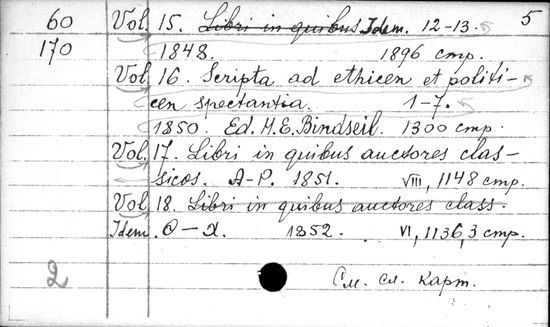 60 Vol. 15. Libri in quibus Idem. 12-13. 5
170 1848. 1896 стр.
Vol. 16. Scripta ad ethicen et politi-
cen spectantia. 1-7.
1850. Ed. H.E. Bindseil. 1300 стр.
Vol. 17. Libri in quibus auctores clas-
sicos. A-P. 1851. VIII, 1148 стр.
Vol. 18. Libri in quibus auctores class.
Idem. Q-X. 1852. VI, 1136, 3 стр.
2 См. сл. карт.